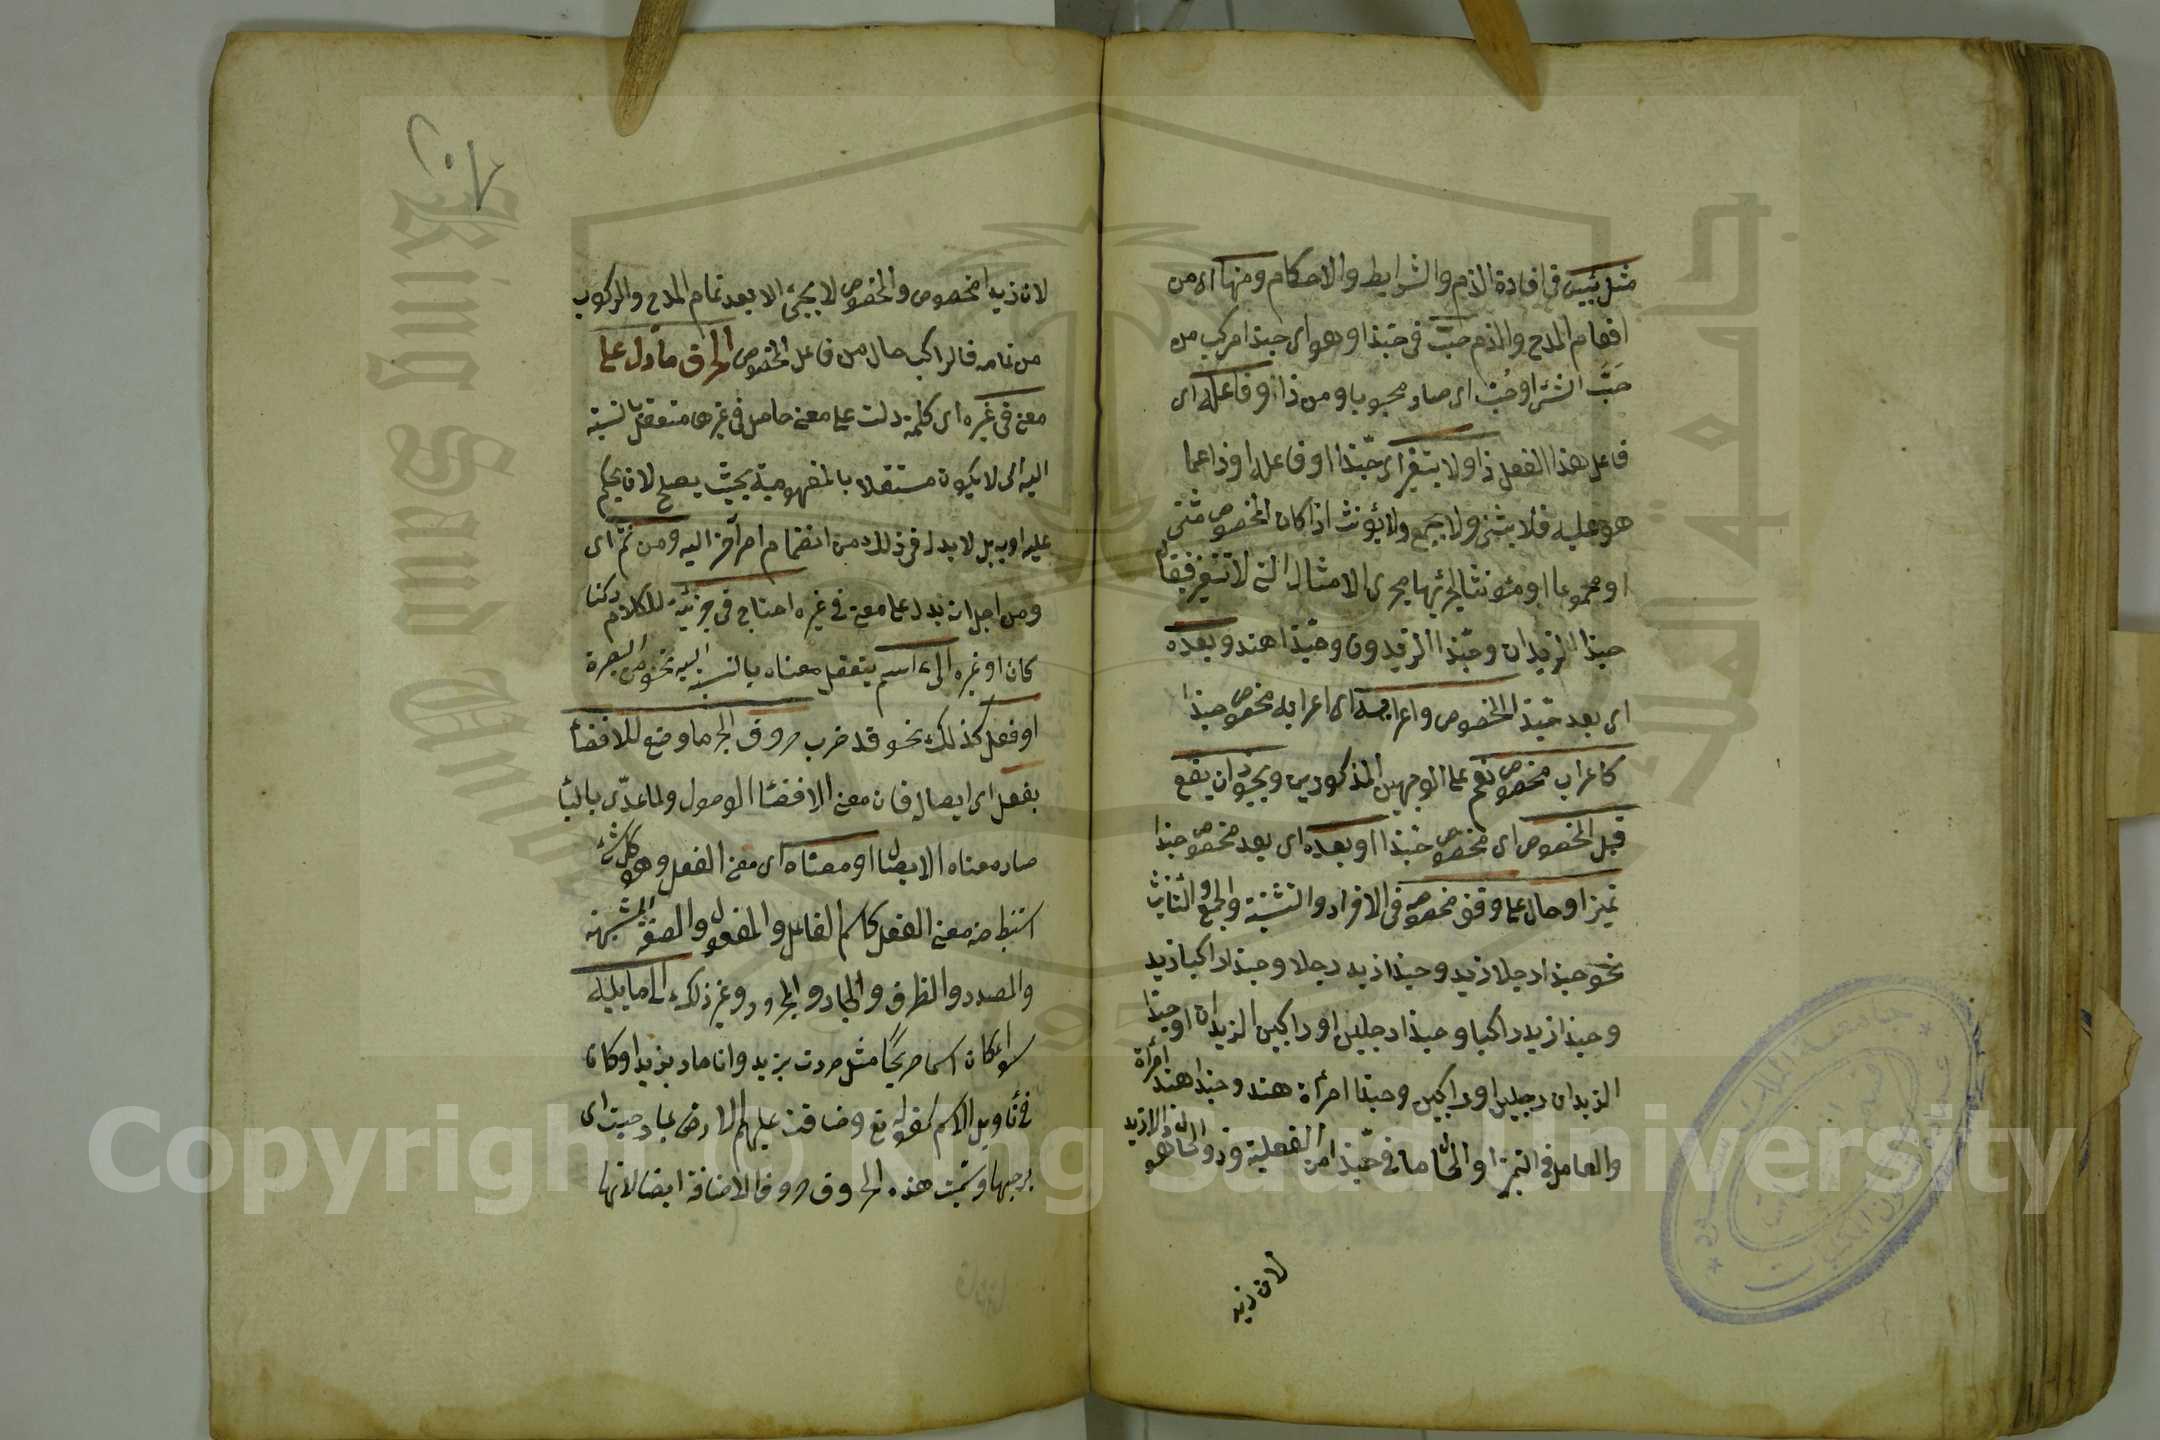 مثل بئس في افادة الذم والشرايط والاحكام ومنها اى من
افعام المدح والذم حبّ في حبّذا وهو اى حبذا مركب من
حَبَّ الشئ او حُبّ اى صار محبوبا ومن ذا وفاعله اى
فاعل هذا الفعل ذا ولا يتغير اى حبّذا او فاعله او ذا عما
هو عليه فلا يثنى ولا يجمع ولا يؤنث اذا كان المخصوص مثنى
او مجموعا او مؤنثا لجريها مجرى الامثال التى لا تتغير فيقال
حبذا الزيدان وحبّذا الزيدون وحبّذا هند وبعده
اى بعد حبّذا المخصوص واعرابه اى اعراب مخصوص حبذا
كاعراب مخصوص نعم على الوجهين المذكورين ويجوز ان يقع
قبل المخصوص اى مخصوص حبّذا او بعده اى بعد مخصوص حبذا
تميز او حال على وفق مخصوصه في الافراد والتثنية والجمع والتانيث
نحو حبذا رجلا زيد وحبذا زيد رجلا وحبذا راكبا زيد
وحبذا زيد راكبا وحبذا رجلين او راكبين الزيدان او حبذا
الزيدان رجلين او راكبين وحبذا امرأة هند وحبذا هند امرأة
والعامل في التميز او الحال ما في حبّذا من الفعلية وذو الحال هو ذا لا زيد
لان زيد
لان زيدا مخصوص والمخصوص لا يجئ الا بعد تمام المدح والركوب
من تمامه فالراكب حال من فاعل لا المخصوص الحرف ما دل على
معنى في غيره اى كلمة دلت على معنى حاصل في غيرها متعقل بالنسبة
اليه اى لا يكون مستقلا بالمفهومية بحيث يصلح لان يحكم
عليه او به بل لا بد له في ذلك من انضمام امر آخر اليه ومن ثم اى
ومن اجل ان يدل على معنى في غيره احتاج في جزئيته للكلام ركنا
كان او غيره الى اسم يتعقل معناه بالنسبة اليه نحو من البصرة
او فعل كذلك نحو قد ضرب حروف الجر ما وضع للافضاء
بفعل اى ايصال فان معنى الافضاء الوصول ولما عدّى بالباء
صار معناه الايصال او معناه اى معنى الفعل وهو كل شئ
استنبط منه معنى الفعل كاسم الفاعل والمفعول والصفة المشبهة
والمصدر والظرف والجار والمجرور وغير ذلك الى ما يليه
سواء كان اسما صريحًا مثل مررت بزيد وانا مار بزيد او كان
في تأويل الاسم كقوله تع وضاقت عليهم الارض بما رحبت اى
برحبها وسمّيت هذه الحروف حروف الاضافة ايضا لانها